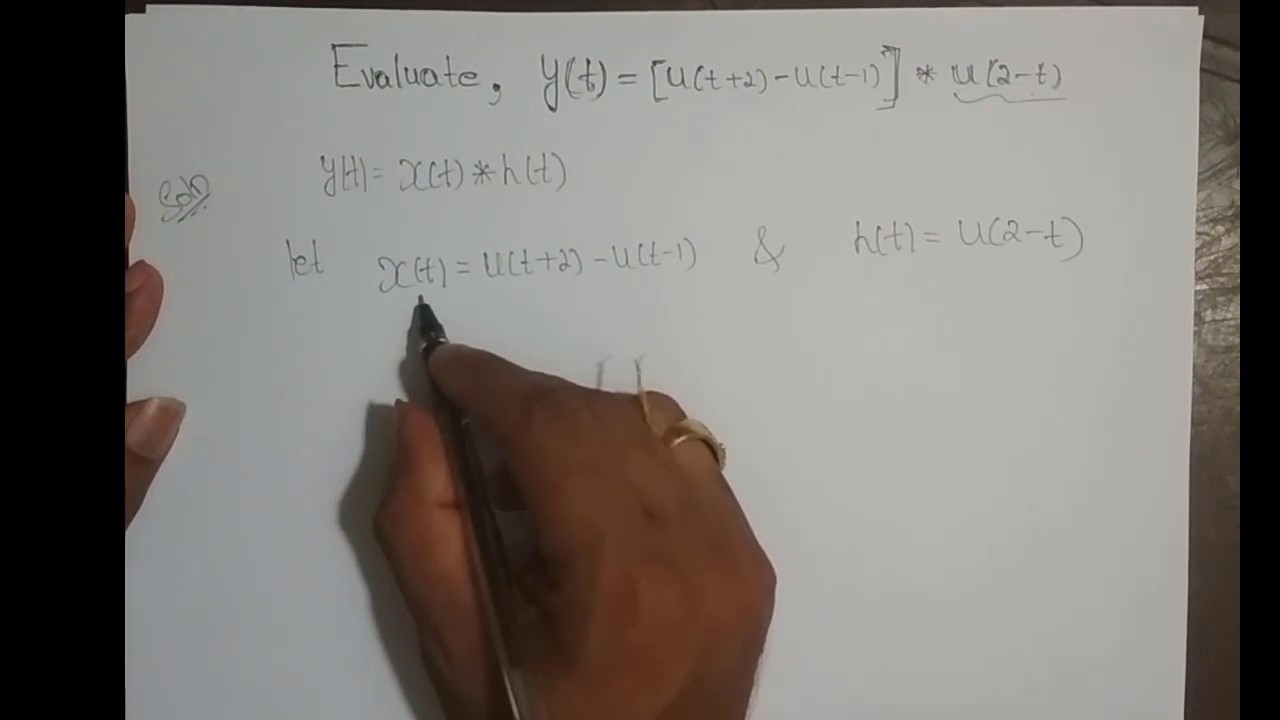 Evaluate, y(t) = [u(t+2) - u(t-1)] * u(2-t)
Soln
y(t) = x(t) * h(t)
let x(t) = u(t+2) - u(t-1) & h(t) = u(2-t)